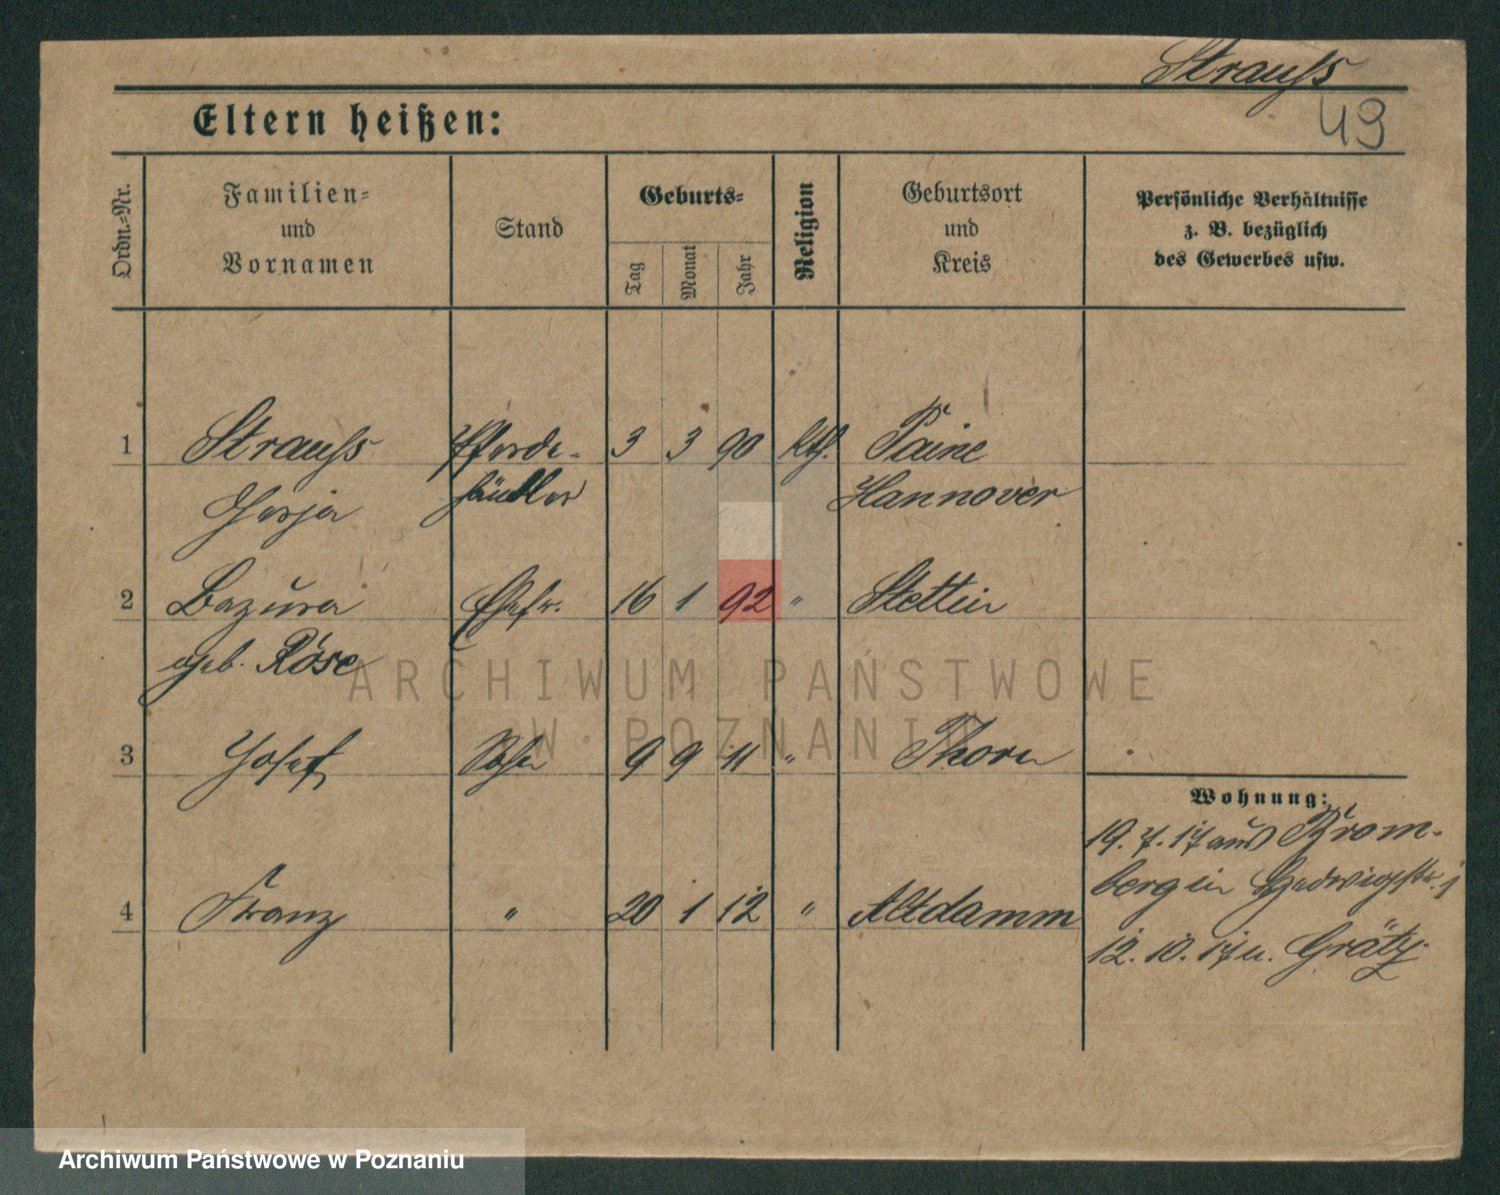 Strauss
49
Eltern heißen:
Ordn.-Nr.
Familien-
und
Vornamen
Stand
Geburts-
Tag
Monat
Jahr
Religion
Geburtsort
und
Kreis
Persönliche Verhältnisse
z. B. bezüglich
des Gewerbes usw.
1 Strauss Pferde- 3 3 90 Kth. Paine
händler Hannover
2 Bazura Ehefr. 16 1 92 " Stettin
geb. Röse
3 Josef Sohn 9 9 11 " Thorn
Wohnung:
19. 7. 17 aus Brom-
berg in Hedwigstr. 1
4 Franz " 20 1 12 " Altdamm
12. 10. 17 n. Grätz
ARCHIWUM PAŃSTWOWE
W POZNANIU
Archiwum Państwowe w Poznaniu